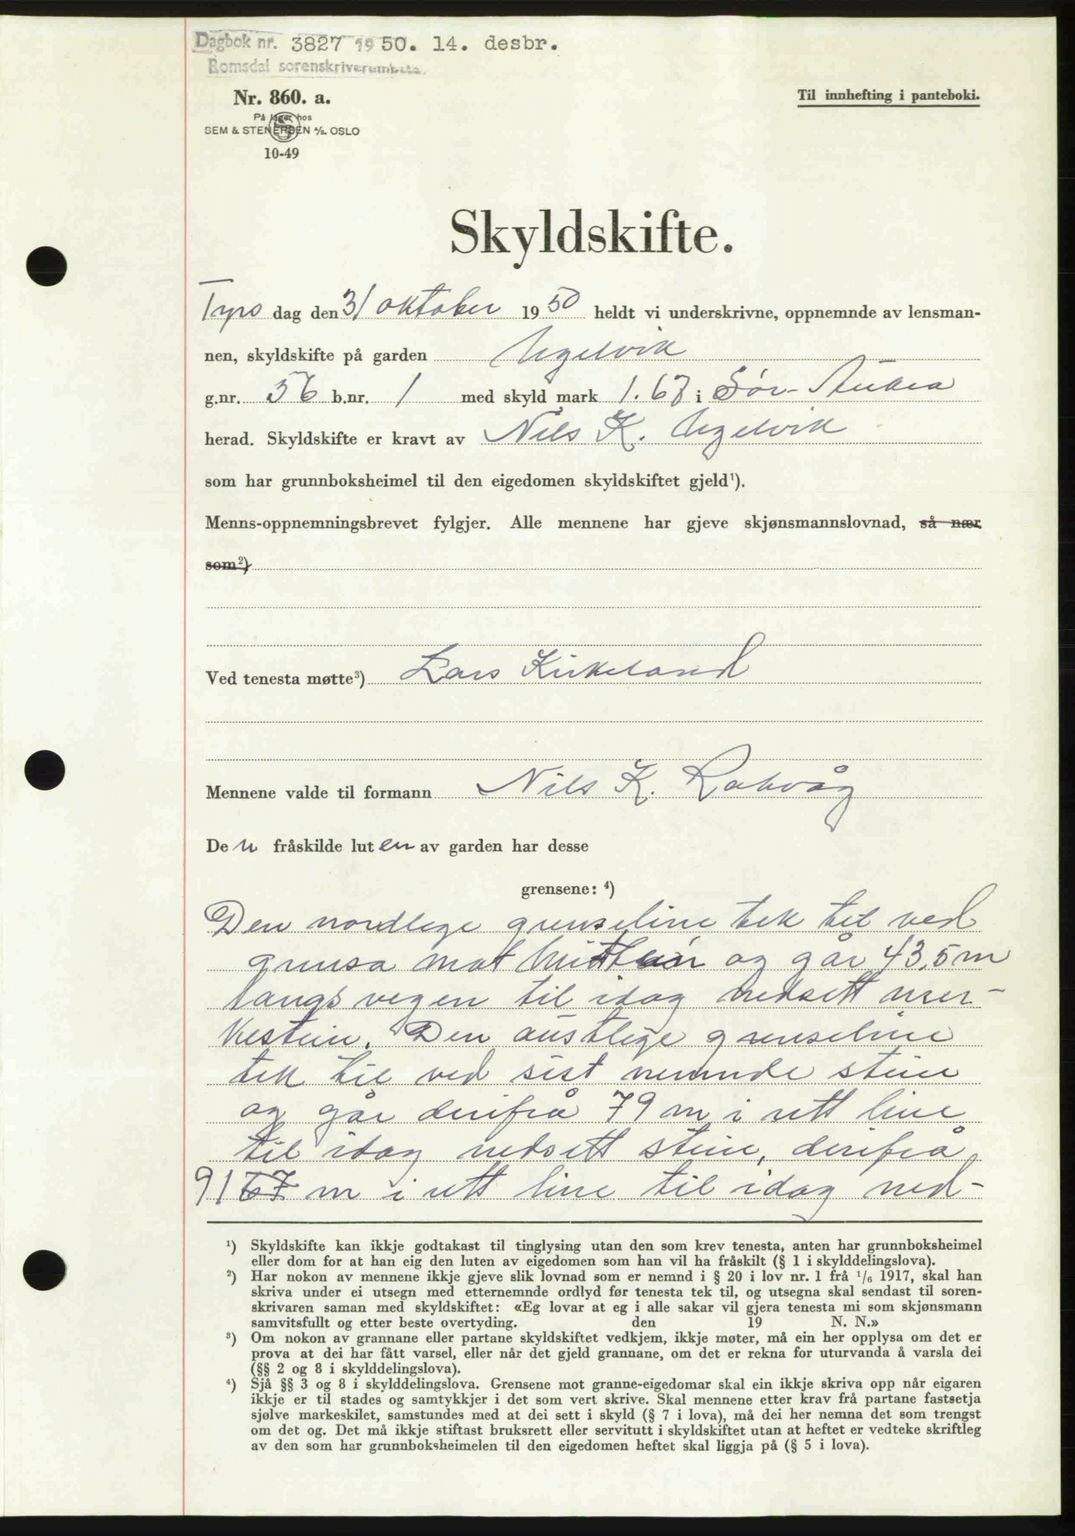 Dagbok nr. 3827 1950. 14. desbr.
Romsdal sorenskriverembete.
Nr. 860. a.
På lager hos
SEM & STENERSEN A/S. OSLO
10-49
Til innhefting i panteboki.
Skyldskifte.
Tyrs dag den 31 oktober 1950 heldt vi underskrivne, oppnemnde av lensman-
nen, skyldskifte på garden Ugelvik
g.nr. 56 b.nr. 1 med skyld mark 1.67 i Sør-Aukra
herad. Skyldskifte er kravt av Nils K. Ugelvik
som har grunnboksheimel til den eigedomen skyldskiftet gjeld¹).
Menns-oppnemningsbrevet fylgjer. Alle mennene har gjeve skjønsmannslovnad, så nær
som²)
Ved tenesta møtte³) Lars Kirkeland
Mennene valde til formann Nils K. Rakvåg
De n fråskilde lut en av garden har desse
grensene: ⁴)
Den nordlege grenseline tek til ved
grensa mot og går 43,5 m
langs vegen til idag nedsett mer-
kestein. Den austlege grenseline
tek til ved sist nemnde stein
og går derifrå 79 m i rett line
til idag nedsett stein, derifrå
91 67 m i rett line til idag ned-
¹) Skyldskifte kan ikkje godtakast til tinglysing utan den som krev tenesta, anten har grunnboksheimel
eller dom for at han eig den luten av eigedomen som han vil ha fråskilt (§ 1 i skylddelingslova).
²) Har nokon av mennene ikkje gjeve slik lovnad som er nemnd i § 20 i lov nr. 1 frå ¹/₆ 1917, skal han
skriva under ei utsegn med etternemnde ordlyd før tenesta tek til, og utsegna skal sendast til soren-
skrivaren saman med skyldskiftet: «Eg lovar at eg i alle sakar vil gjera tenesta mi som skjønsmann
samvitsfullt og etter beste overtyding. den 19 N. N.»
³) Om nokon av grannane eller partane skyldskiftet vedkjem, ikkje møter, må ein her opplysa om det er
prova at dei har fått varsel, eller når det gjeld grannane, om det er rekna for uturvanda å varsla dei
(§§ 2 og 8 i skylddelingslova).
⁴) Sjå §§ 3 og 8 i skylddelingslova. Grensene mot granne-eigedomar skal ein ikkje skriva opp når eigaren
ikkje er til stades og samtykkjer i det som vert skrive. Skal mennene etter krav frå partane fastsetja
sjølve markeskilet, samstundes med at dei sett i skyld (§ 7 i lova), må dei her nemna det som trengst
om det og. Det må ikkje stiftast bruksrett eller servitutt i skyldskiftet utan at heftet er vedteke skriftleg
av den som har grunnboksheimelen til den eigedomen heftet skal liggja på (§ 5 i lova).